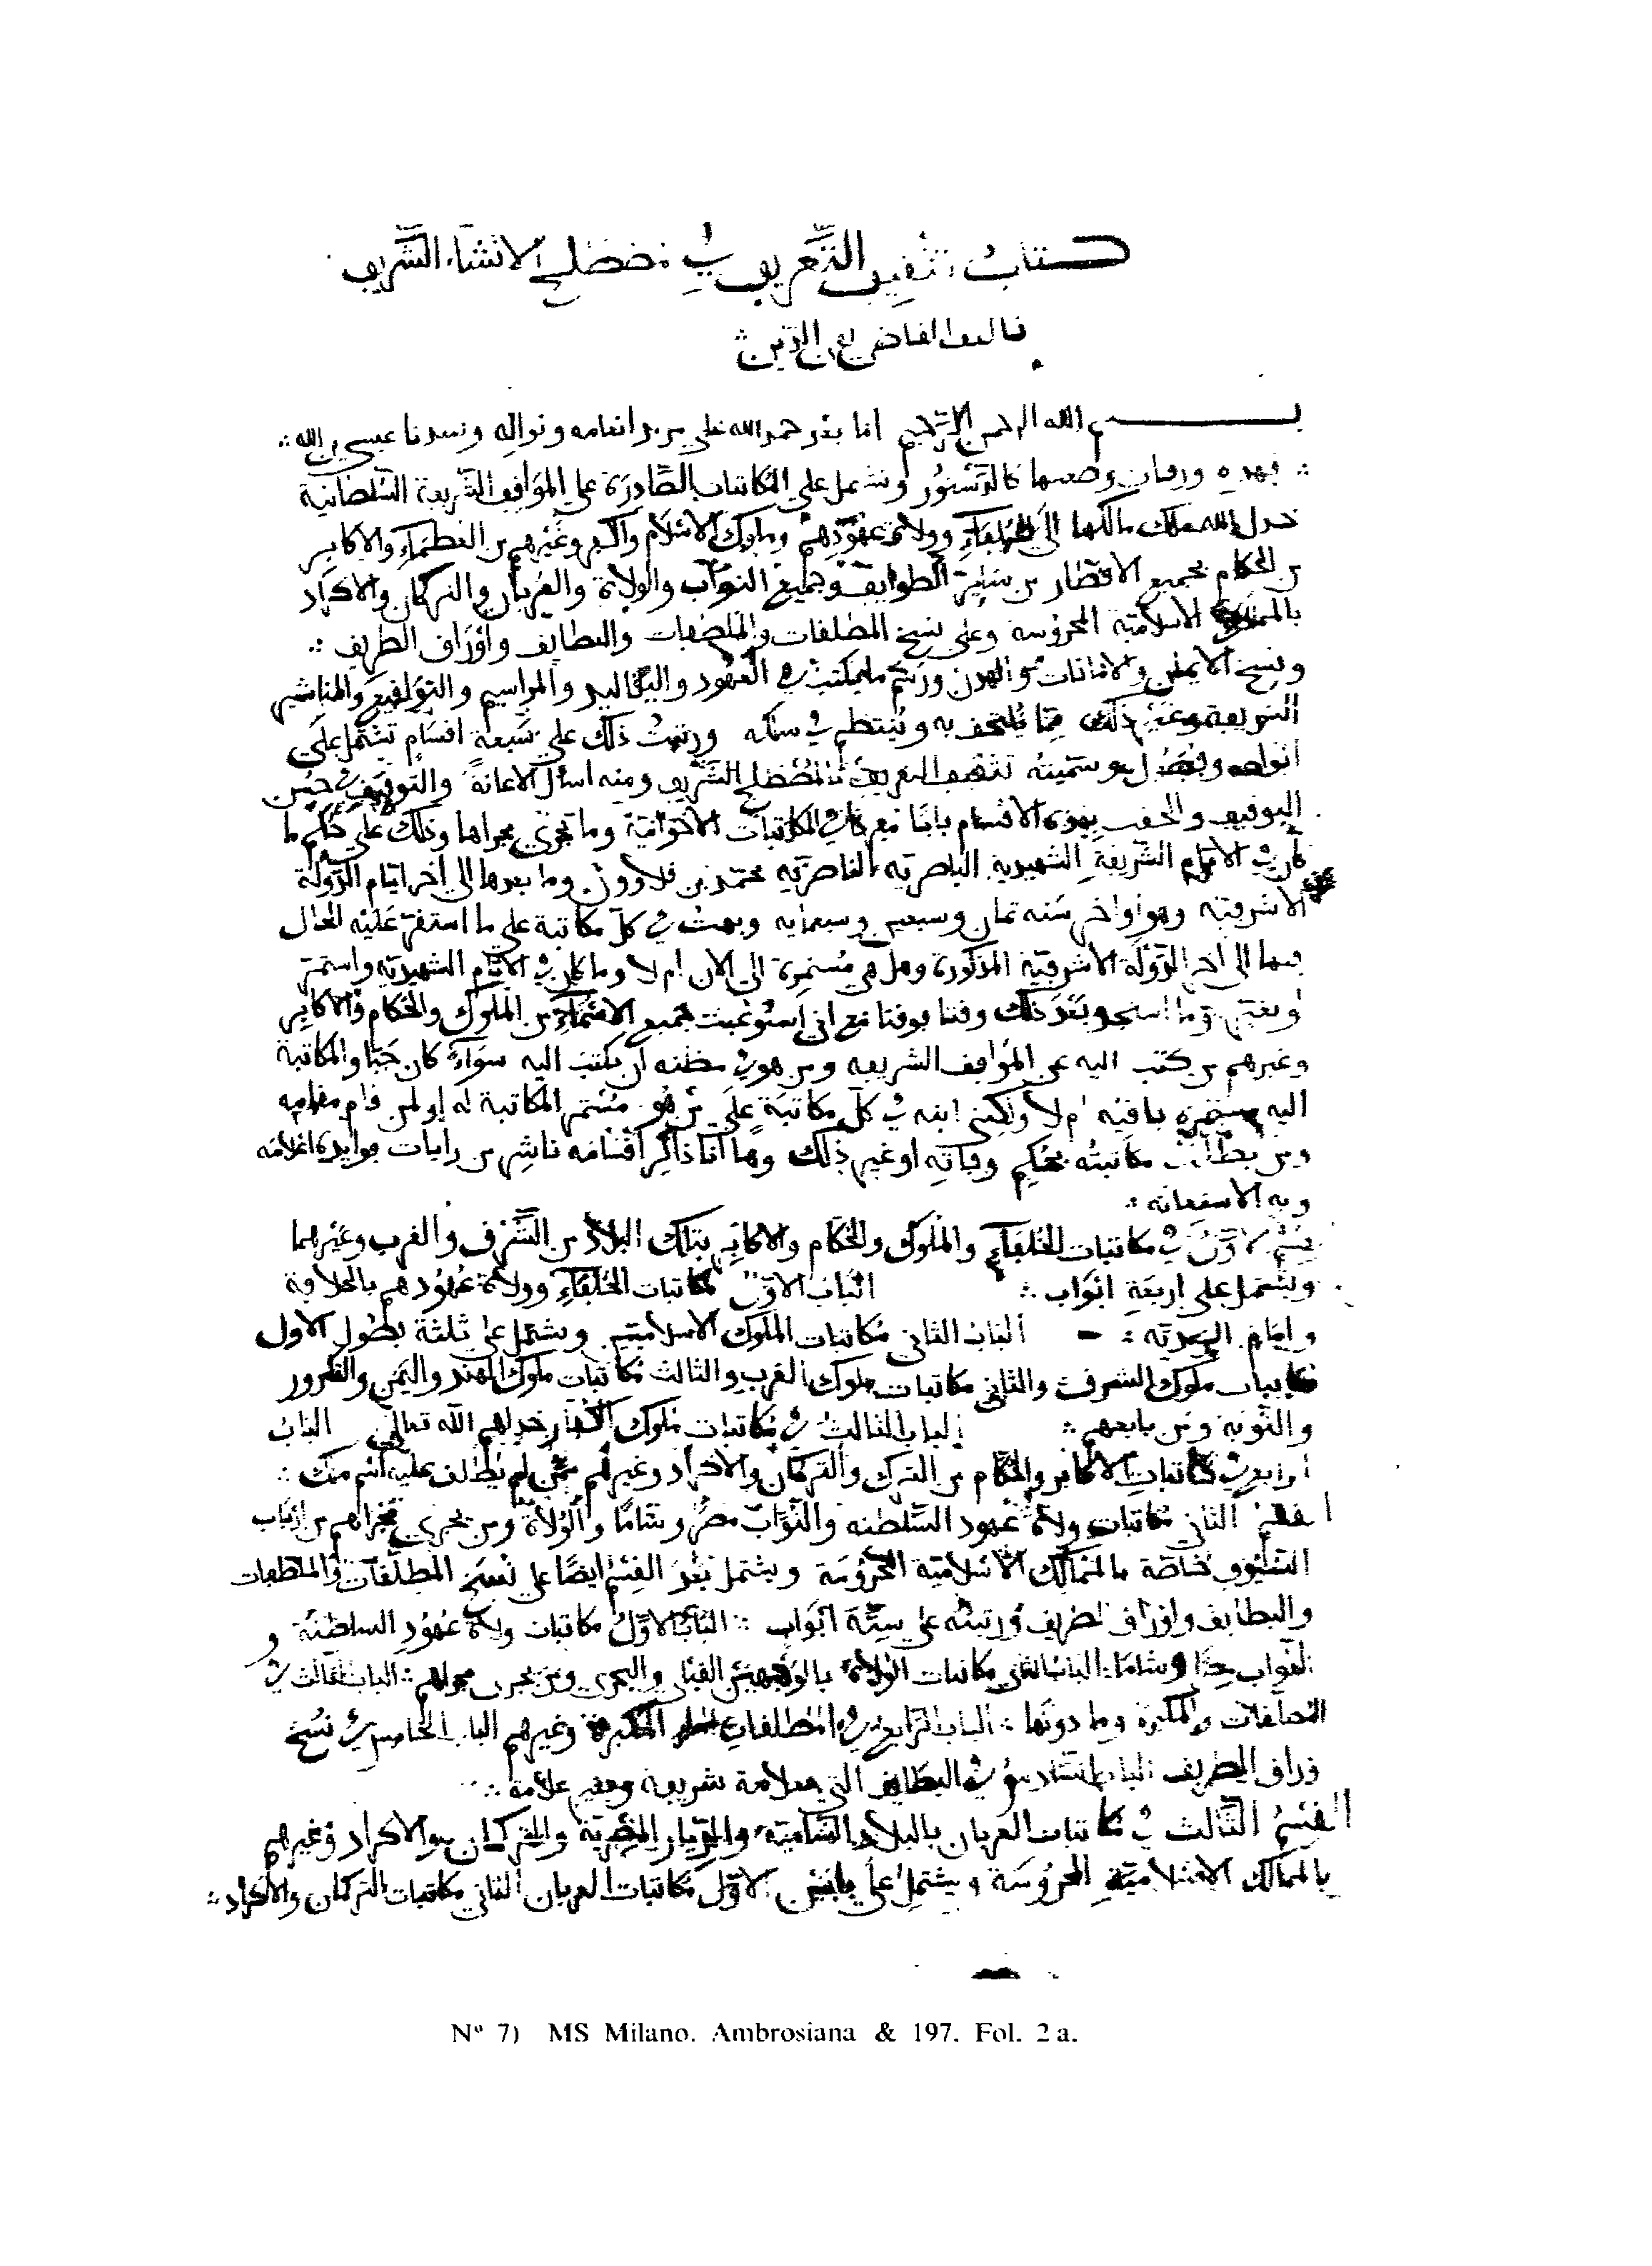 كتاب تثقيف التعريف في مصطلح الانشاء الشريف
تاليف القاضي تقي الدين
بسم الله الرحمن الرحيم اما بعد حمد الله على مزيد انعامه ونواله وسيدنا عيسى بن الله
فهذه ورقات وضعتها كالدستور وتشتمل على المكاتبات الصادرة على المواقف الشريفة السلطانية
خلد الله ملك مالكها الى الخلفاء وولاة عهودهم وملوك الاسلام والكفر وغيرهم من العظماء والاكابر
من الحكام بجميع الاقطار من سائر الطوايف وجميع النواب والولاة والعربان والتركمان والاكراد
الاسلامية المحروسة وعلى نسخ المطلقات والملطفات والبطايف واوراق الطريف
ونسخ الايمان والامانات والهدن ورسم ما يكتب في العهود والتقاليد والمراسيم والتواقيع والمناشير
الشريفة وغير ذلك مما يلتحف به وينتظم في سلكه ورتبت ذلك على سبعة اقسام تشتمل على
انواعه وفصل وسميته تثقيف التعريف بالمصطلح الشريف ومنه اسأل الاعانة والتوفيق حسن
التوفيق والحقت بهذه الاقسام بابا في المكاتبات الاخوانية وما يجري مجراها وذلك على حكم ما
كان في الايام الشريفة الشهيدية الناصرية الناصرية محمد بن قلاوون وما بعدها الى اخر ايام الدولة
الاشرفية وهو اواخر سنه ثمان وسبعين وسبعمايه وبهت في كل مكاتبة على ما استقر عليه الحال
فيها الى اخر الدولة الاشرفية المذكورة وهل هي مستمرة الى الان ام لا وما كان في الايام الشهيدية واستمر
او بغير وما استجد بعد ذلك وقتا بوقتا مع اني استوعبت جميع الاسماء من الملوك والحكام والاكابر
وغيرهم من كتب اليه عن المواقف الشريفه ومن هو في مظنه ان يكتب اليه سواء كان حيا والمكاتبة
اليه مستمره باقيه ام لا ولكنى ابنه في كل مكاتبة على من هو مستمر المكاتبة له او لمن قام مقامه
ومن بطلت مكاتبته بحكم وفاته او غير ذلك وها انا ذاكر اقسامه ناشر من رايات فوايده اعلامه
وبه الاستعانه
قسم الاول في مكاتبات الخلفاء والملوك والحكام والاكابر بتلك البلاد من الشرق والغرب وغيرهما
ويشتمل على اربعة ابواب الباب الاول مكاتبات الخلفاء وولاة عهودهم بالخلافة
وامام الزيدية الباب الثاني مكاتبات الملوك الاسلامية ويشتمل على ثلثة بطول الاول
مكاتبات ملوك الشرق والثاني مكاتبات ملوك الغرب والثالث مكاتبات ملوك الهند واليمن والتكرور
والنوبة ومن بابعهم الباب الثالث في مكاتبات ملوك الكفار خذلهم الله تعالى الباب
الرابع في مكاتبات الاكابر والحكام من الترك والتركمان والاكراد وغيرهم ممن لم يطلق عليه اسم ملك
القسم الثاني مكاتبات ولاة عهود السلطنه والنواب مصرا وشاما والولاة ومن يجري مجراهم من ارباب
السيوف خاصة بالممالك الاسلامية المحروسة ويشتمل بعد القسم ايضا على نسخ المطلقات والملطفات
والبطايف واوراق الطريف ورتبته على ستة ابواب الباب الاول مكاتبات ولاة عهود السلطنة و
النواب وشاما الباب الثاني مكاتبات الولاة بالوجهين القبلي والبحري ومن يجري مجراهم الباب الثالث في
وما دونها الباب الرابع في المطلقات المكبرة وغيرهم الباب الخامس في نسخ
اوراق الطريف الباب السادس في البطايف التي بعلامة شريفة وبغير علامة
القسم الثالث في مكاتبات العربان بالبلاد الشامية والديار المصرية والتركمان والاكراد وغيرهم
بالممالك الاسلامية المحروسة ويشتمل على بابين الاول مكاتبات العربان الثاني مكاتبات التركمان والاكراد
Nº 7) MS Milano. Ambrosiana & 197. Fol. 2a.